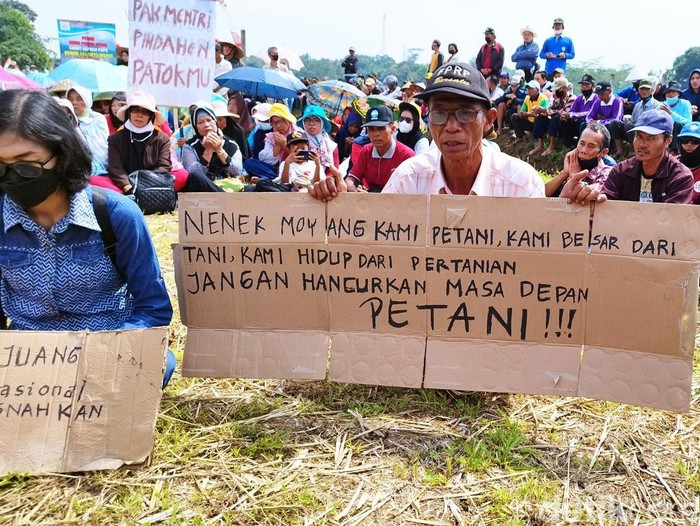 PAK MENTRI
PINDAHEN
PATOKMU
NENEK MOYANG KAMI PETANI, KAMI BESAR DARI
TANI, KAMI HIDUP DARI PERTANIAN
JANGAN HANCURKAN MASA DEPAN
PETANI!!!
JUANG
asional
SNAH KAN